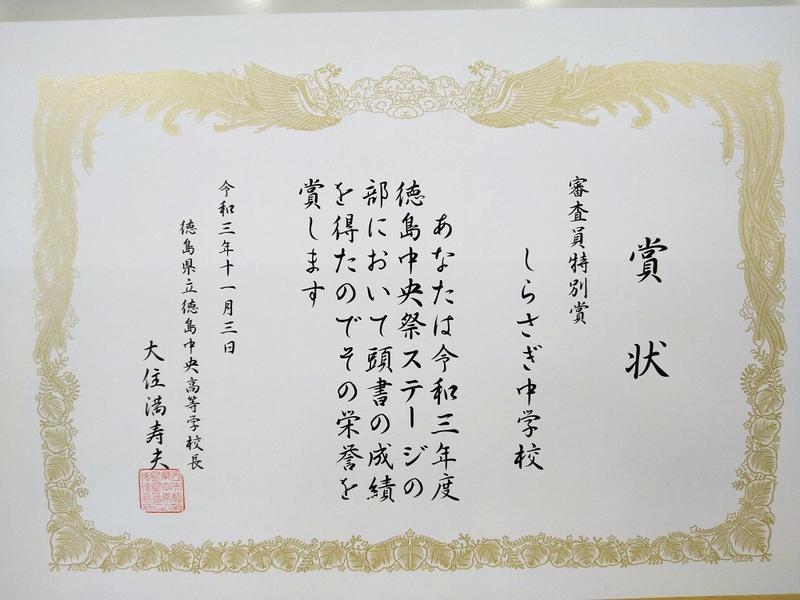 賞状
審査員特別賞
しらさぎ中学校
あなたは令和三年度
徳島中央祭ステージの
部において頭書の成績
を得たのでその栄誉を
賞します
令和三年十一月三日
徳島県立徳島中央高等学校長
大住満寿夫